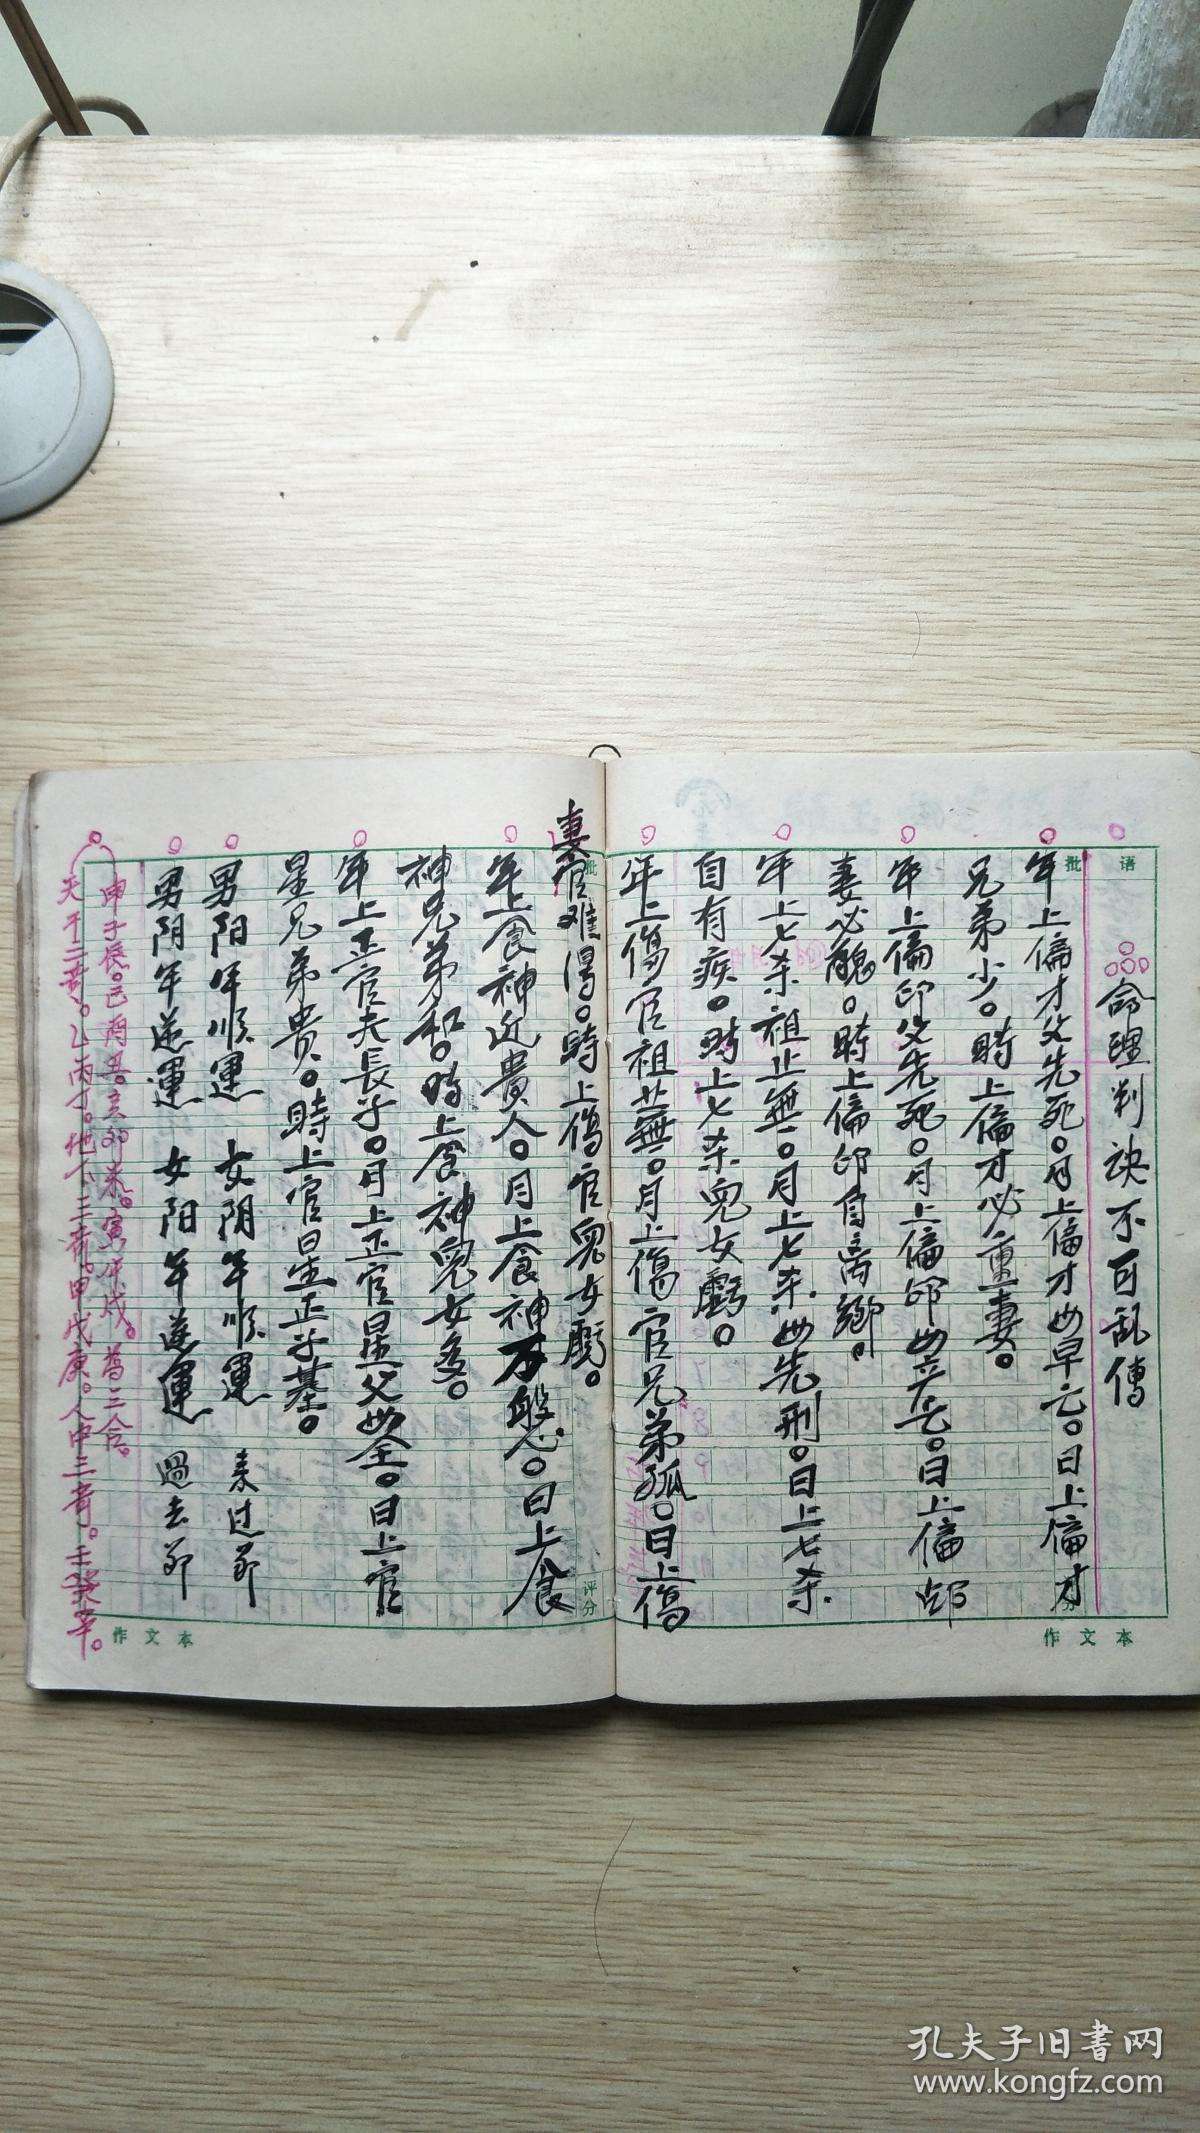 批语
命理判诀不可乱傳
年上偏才父先死。月上偏才母早亡。日上偏才
兄弟少。時上偏才必重妻。
年上偏印父先死。月上偏印母先亡。日上偏印
妻必醜。時上偏印自离鄉。
年上七杀祖上無。月上七杀母先刑。日上七杀
自有疾。時上七杀兒女虧。
年上傷官祖上無。月上傷官兄弟孤。日上傷
官妻难得。時上傷官兒女虧。
年上食神近貴人。月上食神万般。日上食
神兄弟和。時上食神兒女多。
年上正官夫長子。月上正官是父母全。日上官
星兄弟貴。時上官星正子基。
男阳年顺運 女阴年顺運 未过节
男阴年逆運 女阳年逆運 過去节
申子辰。巳酉丑。亥卯未。寅午戌。為三合。
天干三奇。乙丙丁。地下三奇。甲戊庚。人中三奇。壬癸辛。
批
评分
作文本
作文本
孔夫子旧书网
www.kongfz.com